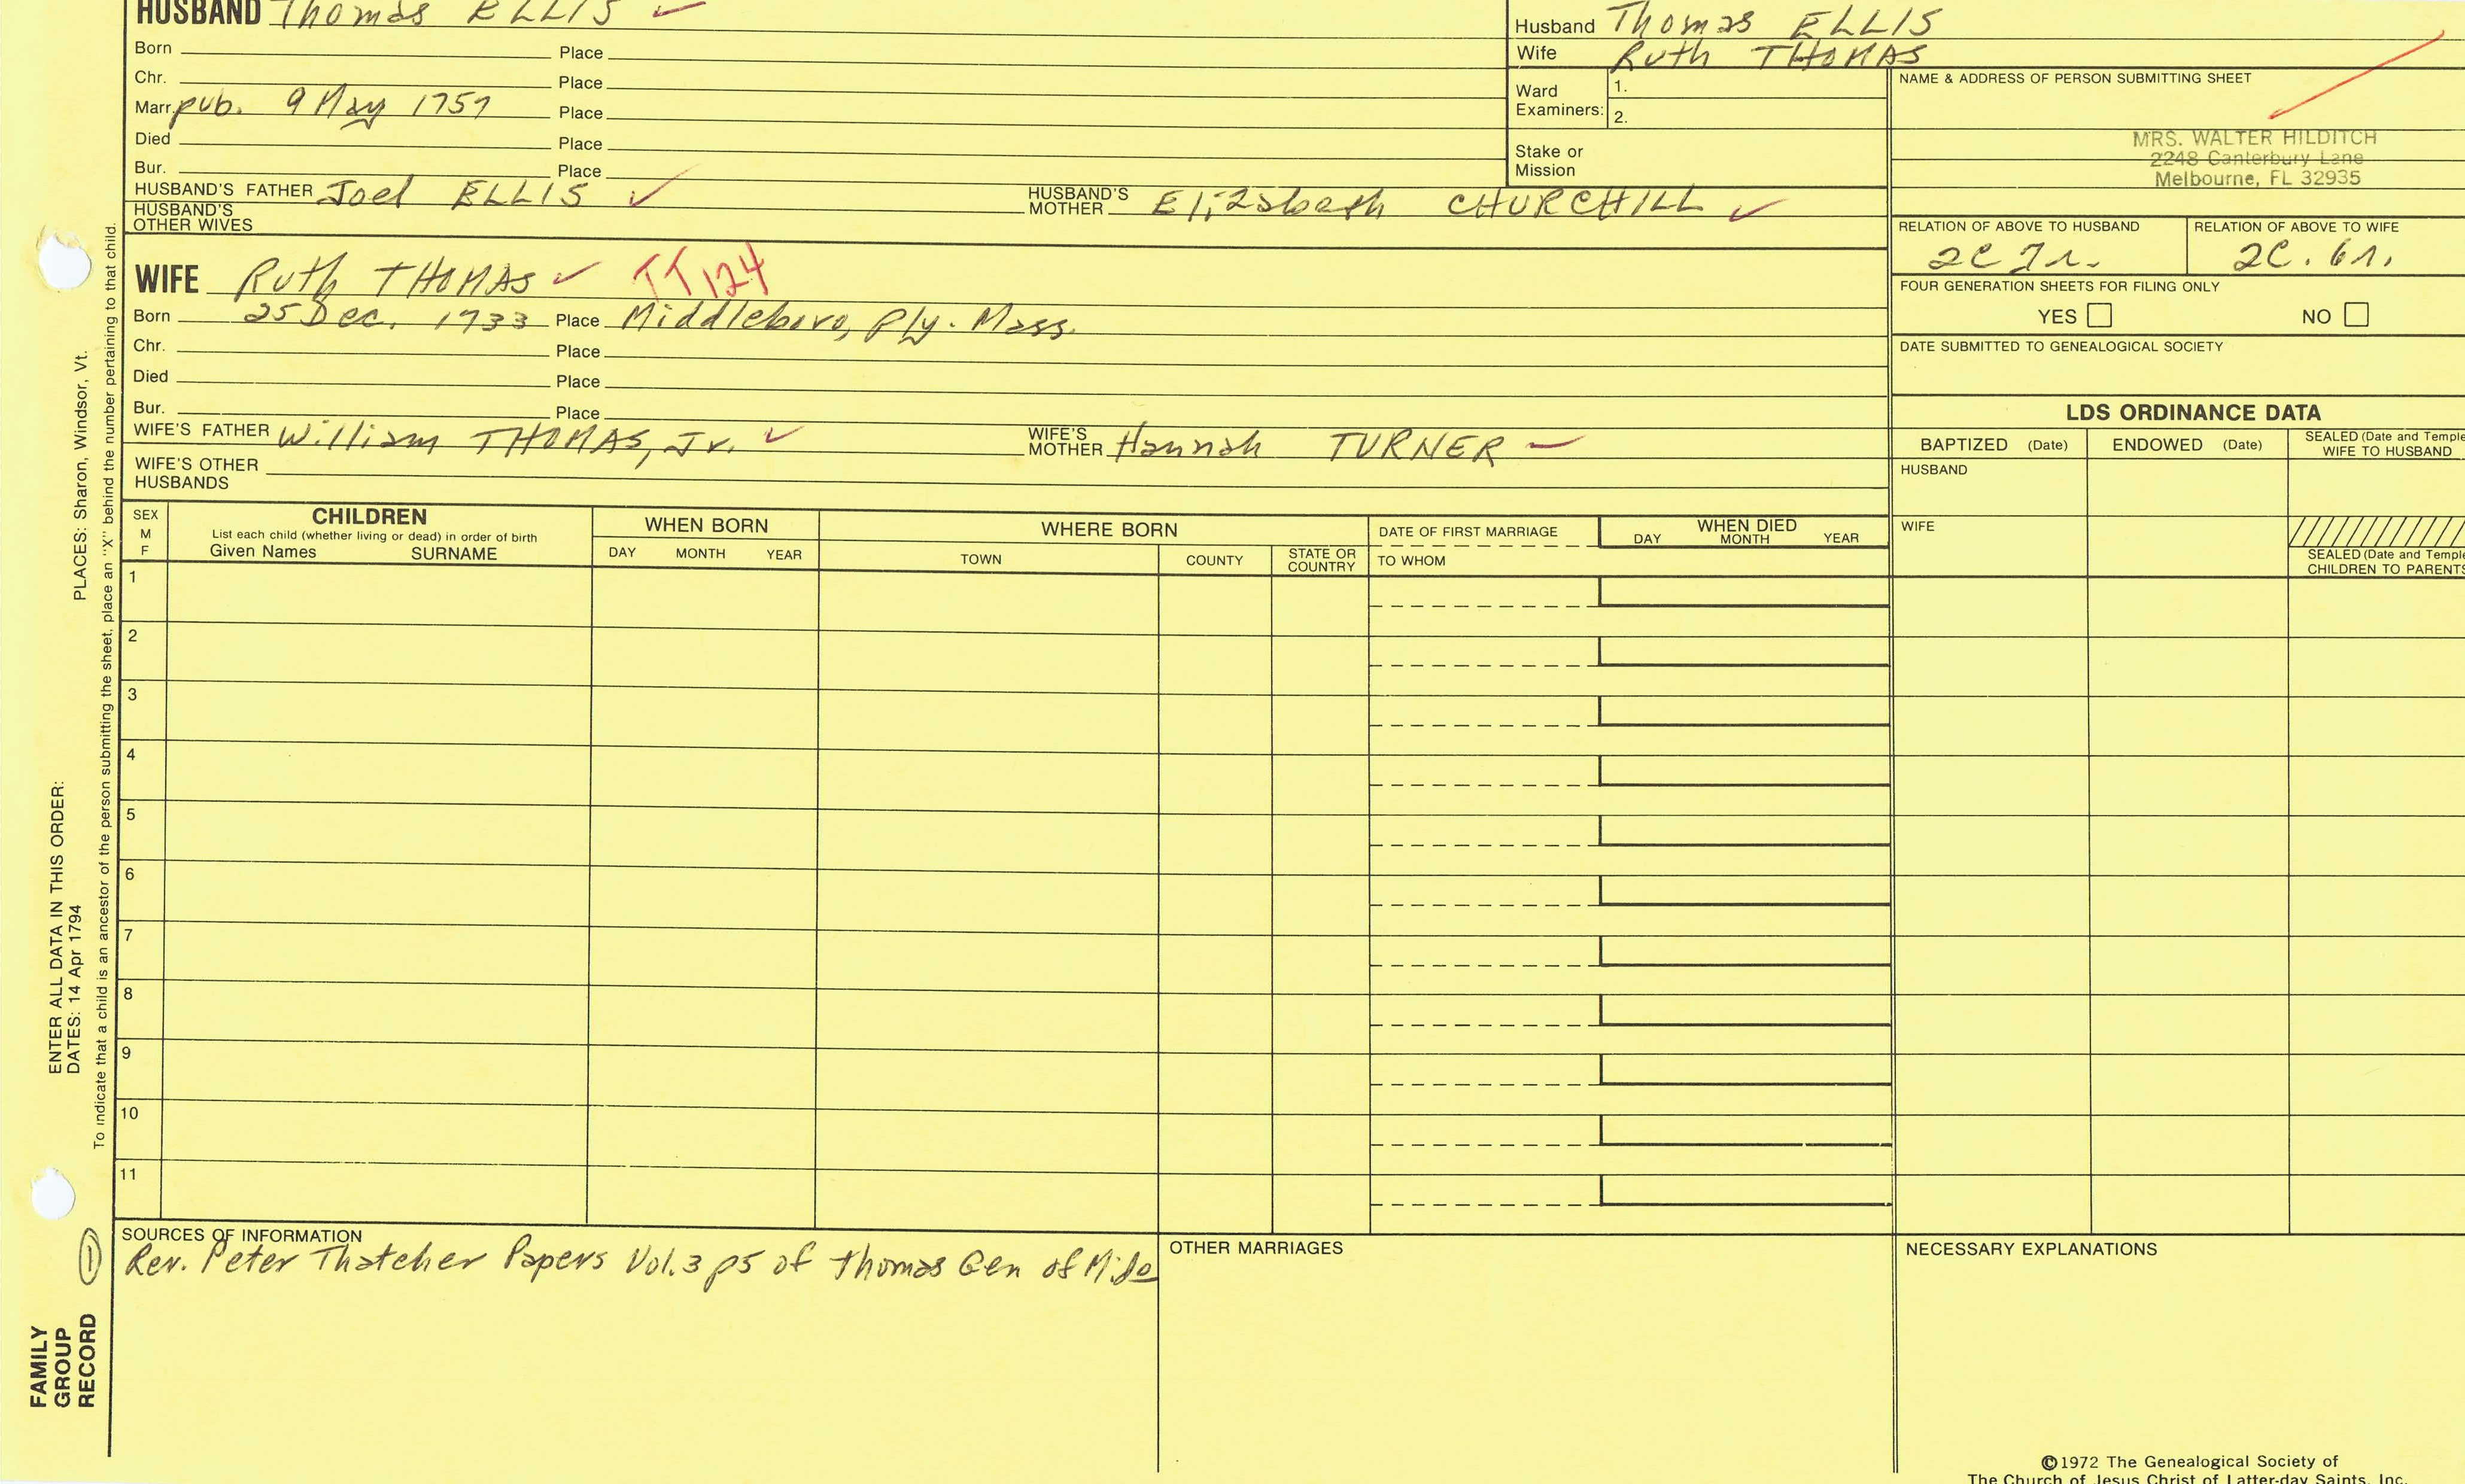 HUSBAND Thomas ELLIS ✓
Born Place
Chr. Place
Marr. pub. 9 May 1757 Place
Died Place
Bur. Place
HUSBAND'S FATHER Joel ELLIS ✓ HUSBAND'S MOTHER Elizabeth CHURCHILL ✓
HUSBAND'S OTHER WIVES
Husband Thomas ELLIS
Wife Ruth THOMAS
Ward Examiners: 1.
2.
Stake or Mission
NAME & ADDRESS OF PERSON SUBMITTING SHEET
MRS. WALTER HILDITCH
2248 Canterbury Lane
Melbourne, FL 32935
RELATION OF ABOVE TO HUSBAND RELATION OF ABOVE TO WIFE
2C 7r. 2C. 6r.
FOUR GENERATION SHEETS FOR FILING ONLY
YES NO
DATE SUBMITTED TO GENEALOGICAL SOCIETY
WIFE Ruth THOMAS ✓ TT124
Born 25 Dec. 1733 Place Middleboro, Ply. Mass.
Chr. Place
Died Place
Bur. Place
WIFE'S FATHER William THOMAS, Jr. ✓ WIFE'S MOTHER Hannah TURNER
WIFE'S OTHER HUSBANDS
LDS ORDINANCE DATA
BAPTIZED (Date) ENDOWED (Date) SEALED (Date and Temple
WIFE TO HUSBAND
HUSBAND
WIFE
SEALED (Date and Temple
CHILDREN TO PARENTS
SEX
M
F
CHILDREN
List each child (whether living or dead) in order of birth
Given Names SURNAME
WHEN BORN
DAY MONTH YEAR
WHERE BORN
TOWN COUNTY STATE OR COUNTRY
DATE OF FIRST MARRIAGE
TO WHOM
WHEN DIED
DAY MONTH YEAR
1
2
3
4
5
6
7
8
9
10
11
SOURCES OF INFORMATION
Rev. Peter Thatcher Papers Vol. 3 p5 of Thomas Gen of
OTHER MARRIAGES
NECESSARY EXPLANATIONS
©1972 The Genealogical Society of
The Church of Jesus Christ of Latter-day Saints, Inc.
ENTER ALL DATA IN THIS ORDER:
DATES: 14 Apr 1794 PLACES: Sharon, Windsor, Vt.
To indicate that a child is an ancestor of the person submitting the sheet, place an "X" behind the number pertaining to that child.
FAMILY
GROUP
RECORD
1